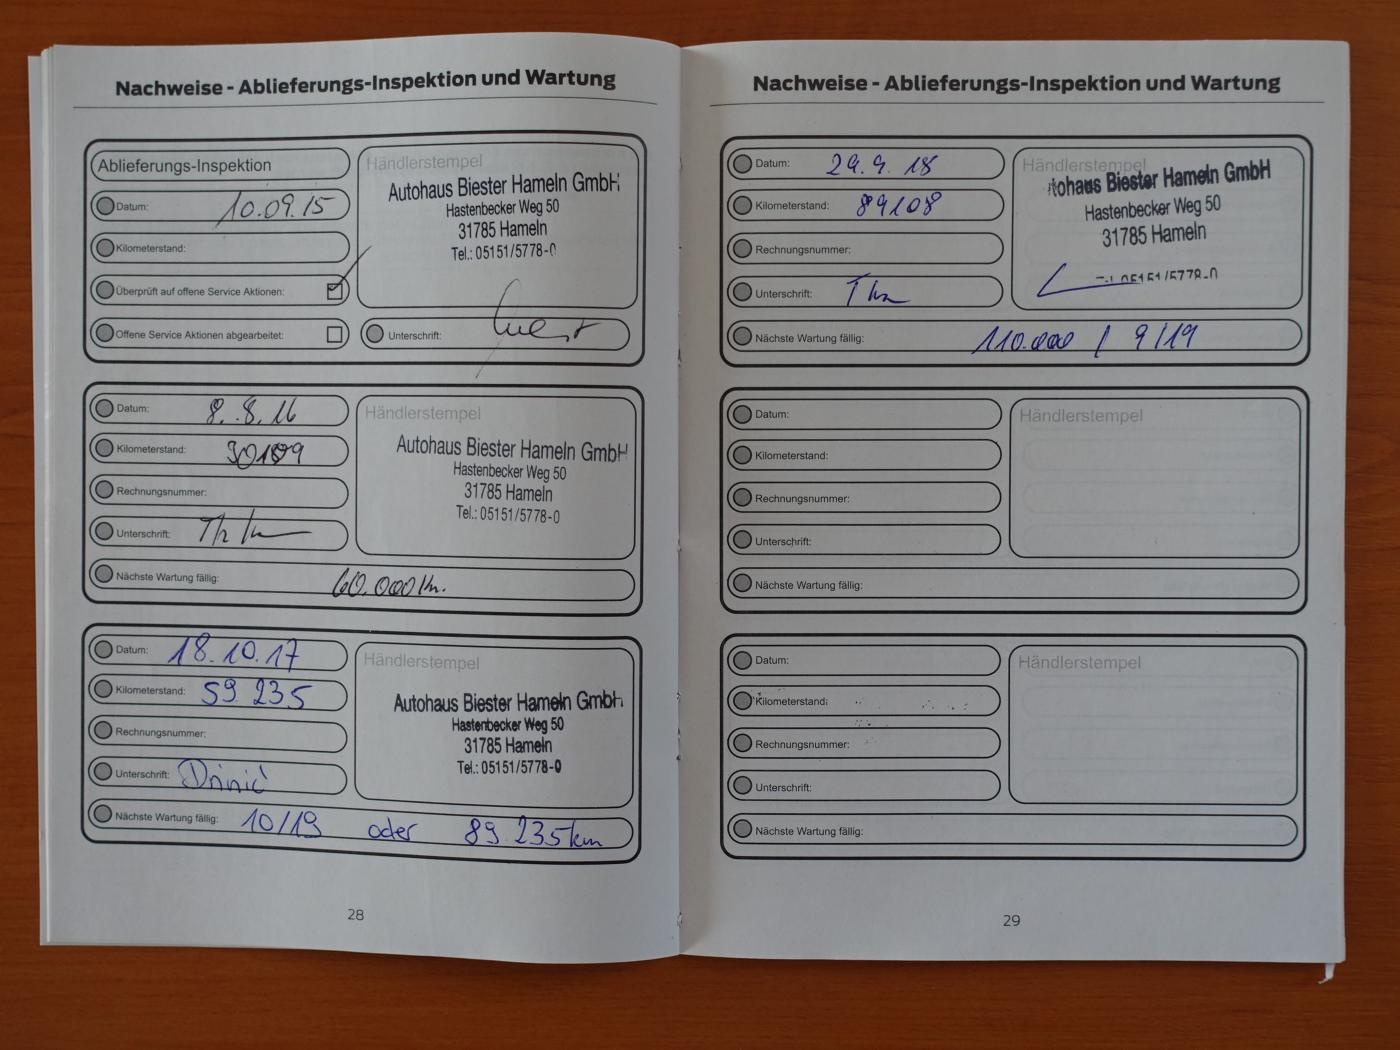 Nachweise - Ablieferungs-Inspektion und Wartung
Ablieferungs-Inspektion
Datum: 10.09.15
Kilometerstand:
Überprüft auf offene Service Aktionen:
Offene Service Aktionen abgearbeitet:
Händlerstempel
Autohaus Biester Hameln GmbH
Hastenbecker Weg 50
31785 Hameln
Tel.: 05151/5778-0
Unterschrift:
Datum: 8.8.16
Kilometerstand: 30189
Rechnungsnummer:
Unterschrift:
Händlerstempel
Autohaus Biester Hameln GmbH
Hastenbecker Weg 50
31785 Hameln
Tel.: 05151/5778-0
Nächste Wartung fällig: 60.000 km.
Datum: 18.10.17
Kilometerstand: 59 235
Rechnungsnummer:
Unterschrift: Drinić
Händlerstempel
Autohaus Biester Hameln GmbH
Hastenbecker Weg 50
31785 Hameln
Tel.: 05151/5778-0
Nächste Wartung fällig: 10/19 oder 89 235 km
28
Nachweise - Ablieferungs-Inspektion und Wartung
Datum: 29.9.18
Kilometerstand: 89108
Rechnungsnummer:
Unterschrift:
Händlerstempel
tohaus Biester Hameln GmbH
Hastenbecker Weg 50
31785 Hameln
05151/5778-0
Nächste Wartung fällig: 110.000 / 9/19
Datum:
Kilometerstand:
Rechnungsnummer:
Unterschrift:
Händlerstempel
Nächste Wartung fällig:
Datum:
Kilometerstand:
Rechnungsnummer:
Unterschrift:
Händlerstempel
Nächste Wartung fällig:
29